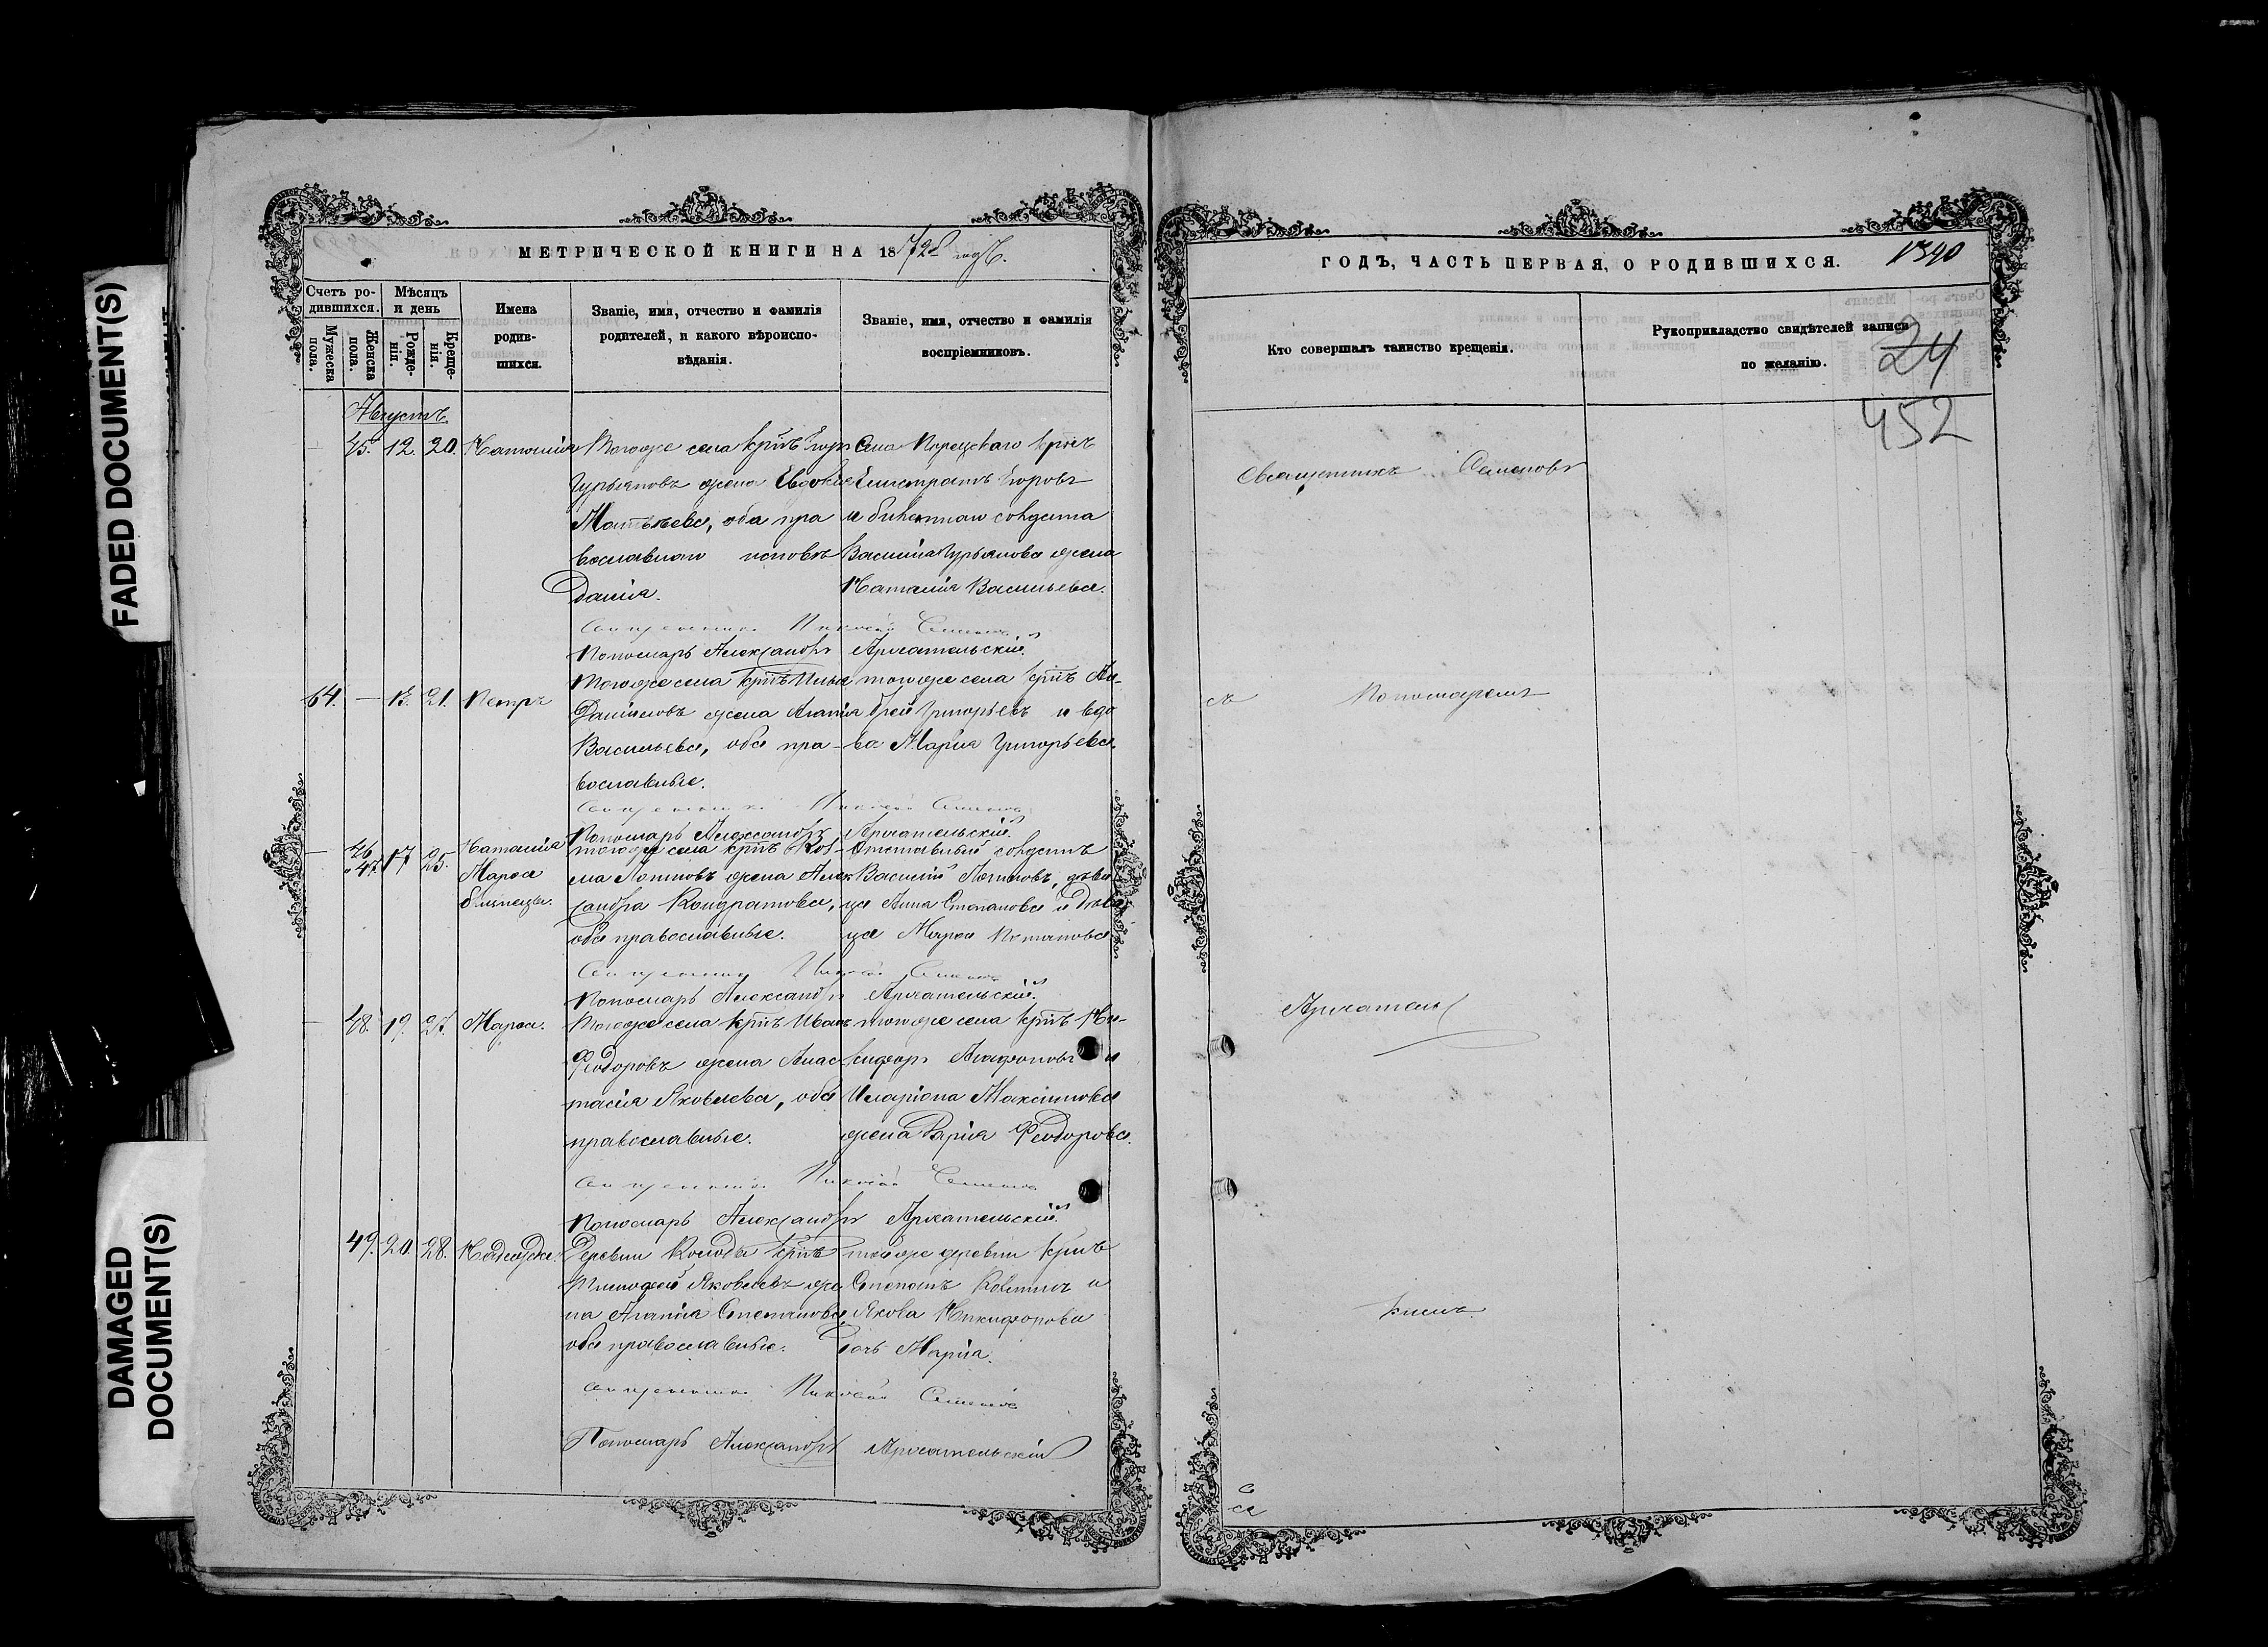 FADED DOCUMENT(S)
DAMAGED
DOCUMENT(S)
МЕТРИЧЕСКОЙ КНИГИ НА 1872й годъ.
Счетъ ро-
дившихся.
Мужеска пола.
Женска пола.
Мѣсяцъ и день
Рожде-
нія.
Креще-
нія.
Имена
родив-
шихся.
Званіе, имя, отчество и фамилія
родителей, и какого вѣроиспо-
вѣданія.
Званіе, имя, отчество и фамилія
воспріемниковъ.
Августъ
45. 12. 20. Наталія
Тогоже села крнъ Егоръ
Гурьяновъ жена Евдокія
Матвѣева, оба пра
вославнаго исповѣ
данія.
Села Порецкаго
Елистратъ Егоровъ
и солдата
Василія Гурьянова жена
Наталія Васильева.
Священникъ Николай Семеновъ
Пономарь Александръ Архательскій.
64. — 13. 21. Петръ
Тогоже села крнъ Илья
Даниловъ жена Агапія
Васильева, оба пра-
вославные.
тогоже села крнъ Ан-
дрей Григорьевъ и вдо
ва Марія Григорьева.
Священникъ Николай Семеновъ
Пономарь Александръ Архательскій.
— 46 47. 17 25. Наталія
Марѳа
близнецы.
тогоже села крнъ Коз-
ма Логиновъ жена Алек
сандра Кондратова,
оба православные.
Отставный солдатъ
Василій Логиновъ, дѣви
ца Анна Степанова и дѣви
ца Марѳа Потапова.
Священникъ Николай Семеновъ
Пономарь Александръ Архательскій.
— 48. 19. 27. Марѳа.
Тогоже села крнъ Иванъ
Ѳеодоровъ жена Анас-
тасія Яковлева, оба
православные.
тогоже села крнъ Ни-
кифоръ Агафоновъ и
Иларіона Максимова
жена Дарія Ѳеодорова.
Священникъ Николай Семеновъ
Пономарь Александръ Архательскій.
49. 20. 28. Надежда.
Деревни крнъ
Тимофей Яковлевъ же
на Агапія Степанова,
оба православные.
тойже деревни крнъ
Степанъ и
Якова Никифорова
дочь Марія.
Священникъ Николай Семеновъ
Пономарь Александръ Архательскій
ГОДЪ, ЧАСТЬ ПЕРВАЯ, О РОДИВШИХСЯ.
1340
Кто совершалъ таинство крещенія.
Рукоприкладство свидѣтелей записи
по желанію.
24
452
Священникъ Семеновъ
съ Пономаремъ
Архатель
скимъ